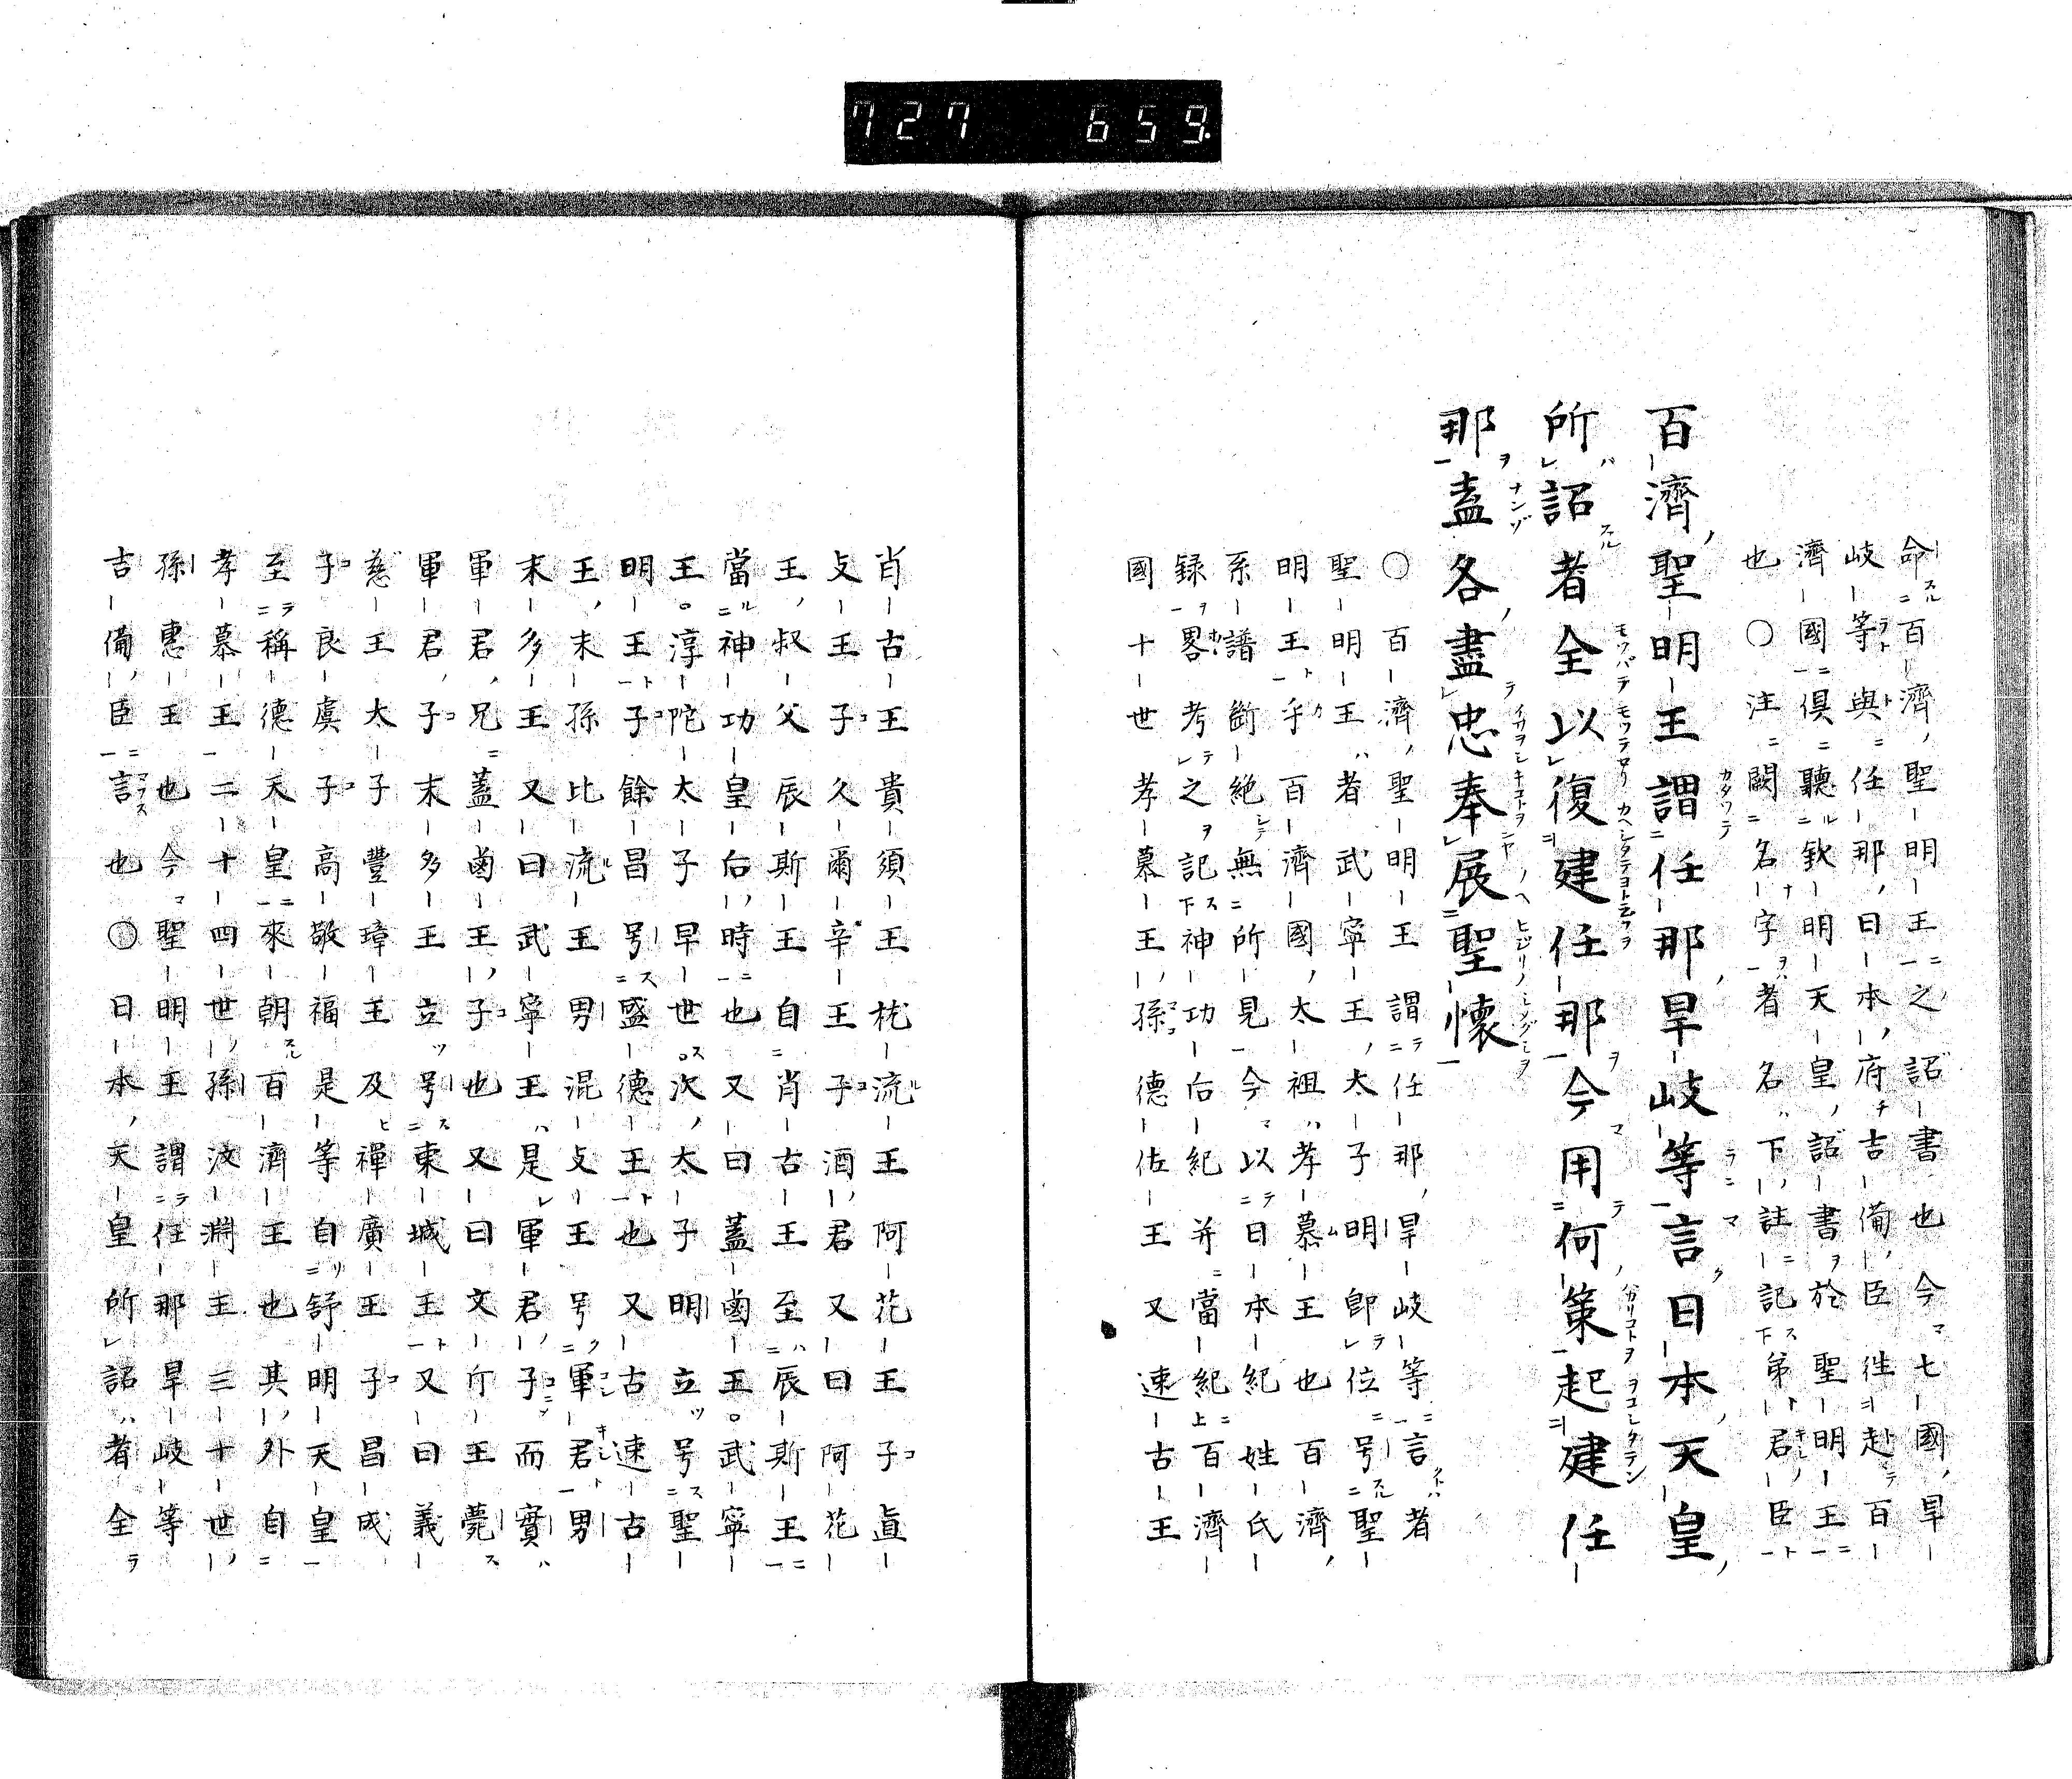 727 659
命百濟聖明王之詔書也今七國旱
岐等與任那日本府吉備臣徃赴百
濟國俱聽欽明天皇詔書於聖明王
也〇注闕名字者名下註記苐君臣
百濟聖明王謂任那旱岐等言日本天皇
所詔者全以復建任那今用何策起建任
那盍各盡忠奉展聖懷
〇百濟聖明王謂任那旱岐等言者
聖明王者武寧王太子明即位号聖
明王乎百濟國太祖孝慕王也百濟
系譜斷絶無所見今以日本紀姓氏
録畧考之記神功后紀并當紀百濟
國十世孝慕王孫德佐王又速古王
肖古王貴須王枕流王阿花王子直
支王子久爾辛王子酒君又曰阿花
王叔父辰斯王自肖古王至辰斯王
當神功皇后時也又曰蓋鹵王武寧
王淳陀太子早世次太子明立号聖
明王子餘昌号盛德王也又古速古
王末孫比流王男混支王号軍君男
末多王又曰武寧王是軍君子而實
軍君兄蓋鹵王子也又曰文斤王薨
軍君子末多王立号東城王又曰義
慈王太子豐璋王及禪廣王子昌成
子良虞子高敬福是等自舒明天皇
至稱德天皇來朝百濟王也其外自
孝慕王二十四世孫汶淵王三十世
孫惠王也今聖明王謂任那旱岐等
吉備臣言也〇日本天皇所詔者全